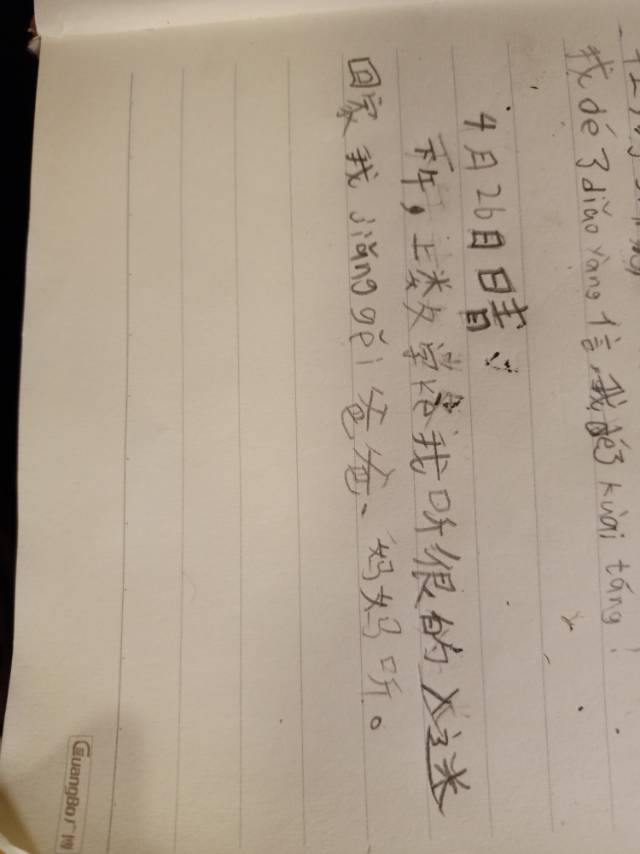 我dé3diǎo yàng信,我dé3kuài táng!
4月26日晴
下午,上数学给我听很的
回家我jiǎng gěi爸爸、妈妈听。
GuangBo广博